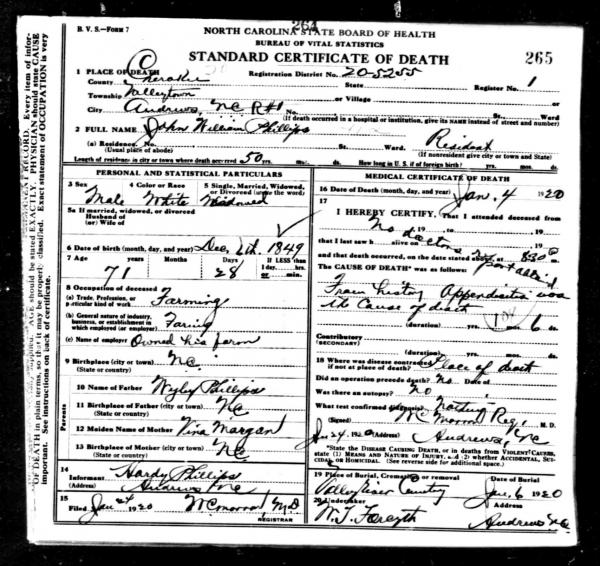 264
B. V. S.—FORM 7
NORTH CAROLINA STATE BOARD OF HEALTH
BUREAU OF VITAL STATISTICS
STANDARD CERTIFICATE OF DEATH
265
1 PLACE OF DEATH
Registration District No. 20-5255
Register No. 1
County Cherokee
State
Township Valleytown
or Village
City Andrews, NC R#1 No.
St. Ward
(If death occurred in a hospital or institution, give its NAME instead of street and number)
2 FULL NAME John William Phillips
(a) Residence. No. St. Ward. Resident
(Usual place of abode) (If nonresident give city or town and State)
Length of residence in city or town where death occurred 50 yrs. mos. ds. How long in U. S. if of foreign birth? yrs. mos. ds.
PERSONAL AND STATISTICAL PARTICULARS
3 Sex 4 Color or Race 5 Single, Married, Widowed, or Divorced (write the word)
Male White Widowed
5a If married, widowed, or divorced
Husband of
(or) Wife of
6 Date of birth (month, day, and year) Dec. 6th. 1849
7 Age Years Months Days If LESS than 1 day, hrs. or min.
71 28
8 Occupation of deceased
(a) Trade, Profession, or particular kind of work Farming
(b) General nature of industry, business, or establishment in which employed (or employer) Faring
(c) Name of employer Owned his farm
9 Birthplace (city or town) NC.
(State or country)
Parents
10 Name of Father Wyley Phillips
11 Birthplace of Father (city or town) NC
(State or country)
12 Maiden Name of Mother Vina Margan
13 Birthplace of Mother (city or town) NC
(State or country)
14
Informant Hardy Phillips
(Address) Andrews NC
15
Filed Jan 24 1920 MD
REGISTRAR
MEDICAL CERTIFICATE OF DEATH
16 Date of Death (month, day, and year) Jan. 4 1920
17
I HEREBY CERTIFY, That I attended deceased
from No doctors 19 to 19
that I last saw h alive on 19
and that death occurred, on the date stated above, at 8:30
The CAUSE OF DEATH* was as follows:
From history Appendicitis was
the Cause of death
(duration) yrs. mos. 6 ds.
Contributory
(SECONDARY)
(duration) yrs. mos. ds.
18 Where was disease contracted if not at place of death? Place of death
Did an operation precede death? No Date of
Was there an autopsy? No
What test confirmed diagnosis? Nothing
(Signed) Reg. M. D.
Jan 24. 1920 Andrews, NC
*State the DISEASE CAUSING DEATH, or in deaths from VIOLENT CAUSES, state (1) MEANS AND NATURE OF INJURY, and (2) whether ACCIDENTAL, SUICIDAL, or HOMICIDAL. (See reverse side for additional space.)
19 Place of Burial, Cremation, or removal Date of Burial
Valley River Cemetery Jan. 6 1920
20 Undertaker Address
W. J. Forsyth Andrews NC